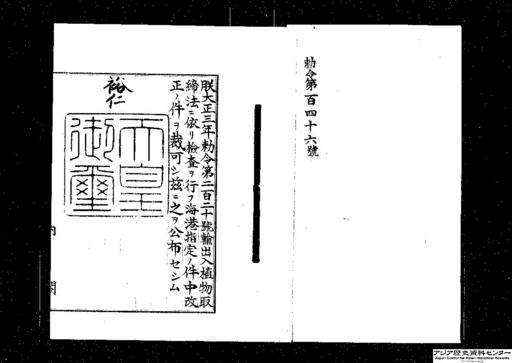 勅令第百四十六號
朕大正三年勅令第二百二十號輸出入植物取
締法ニ依リ檢査ヲ行フ海港指定ノ件中改
正ノ件ヲ裁可シ茲ニ之ヲ公布セシム
裕仁
天皇御璽
内閣
アジア歴史資料センター
Japan Center for Asian Historical Records